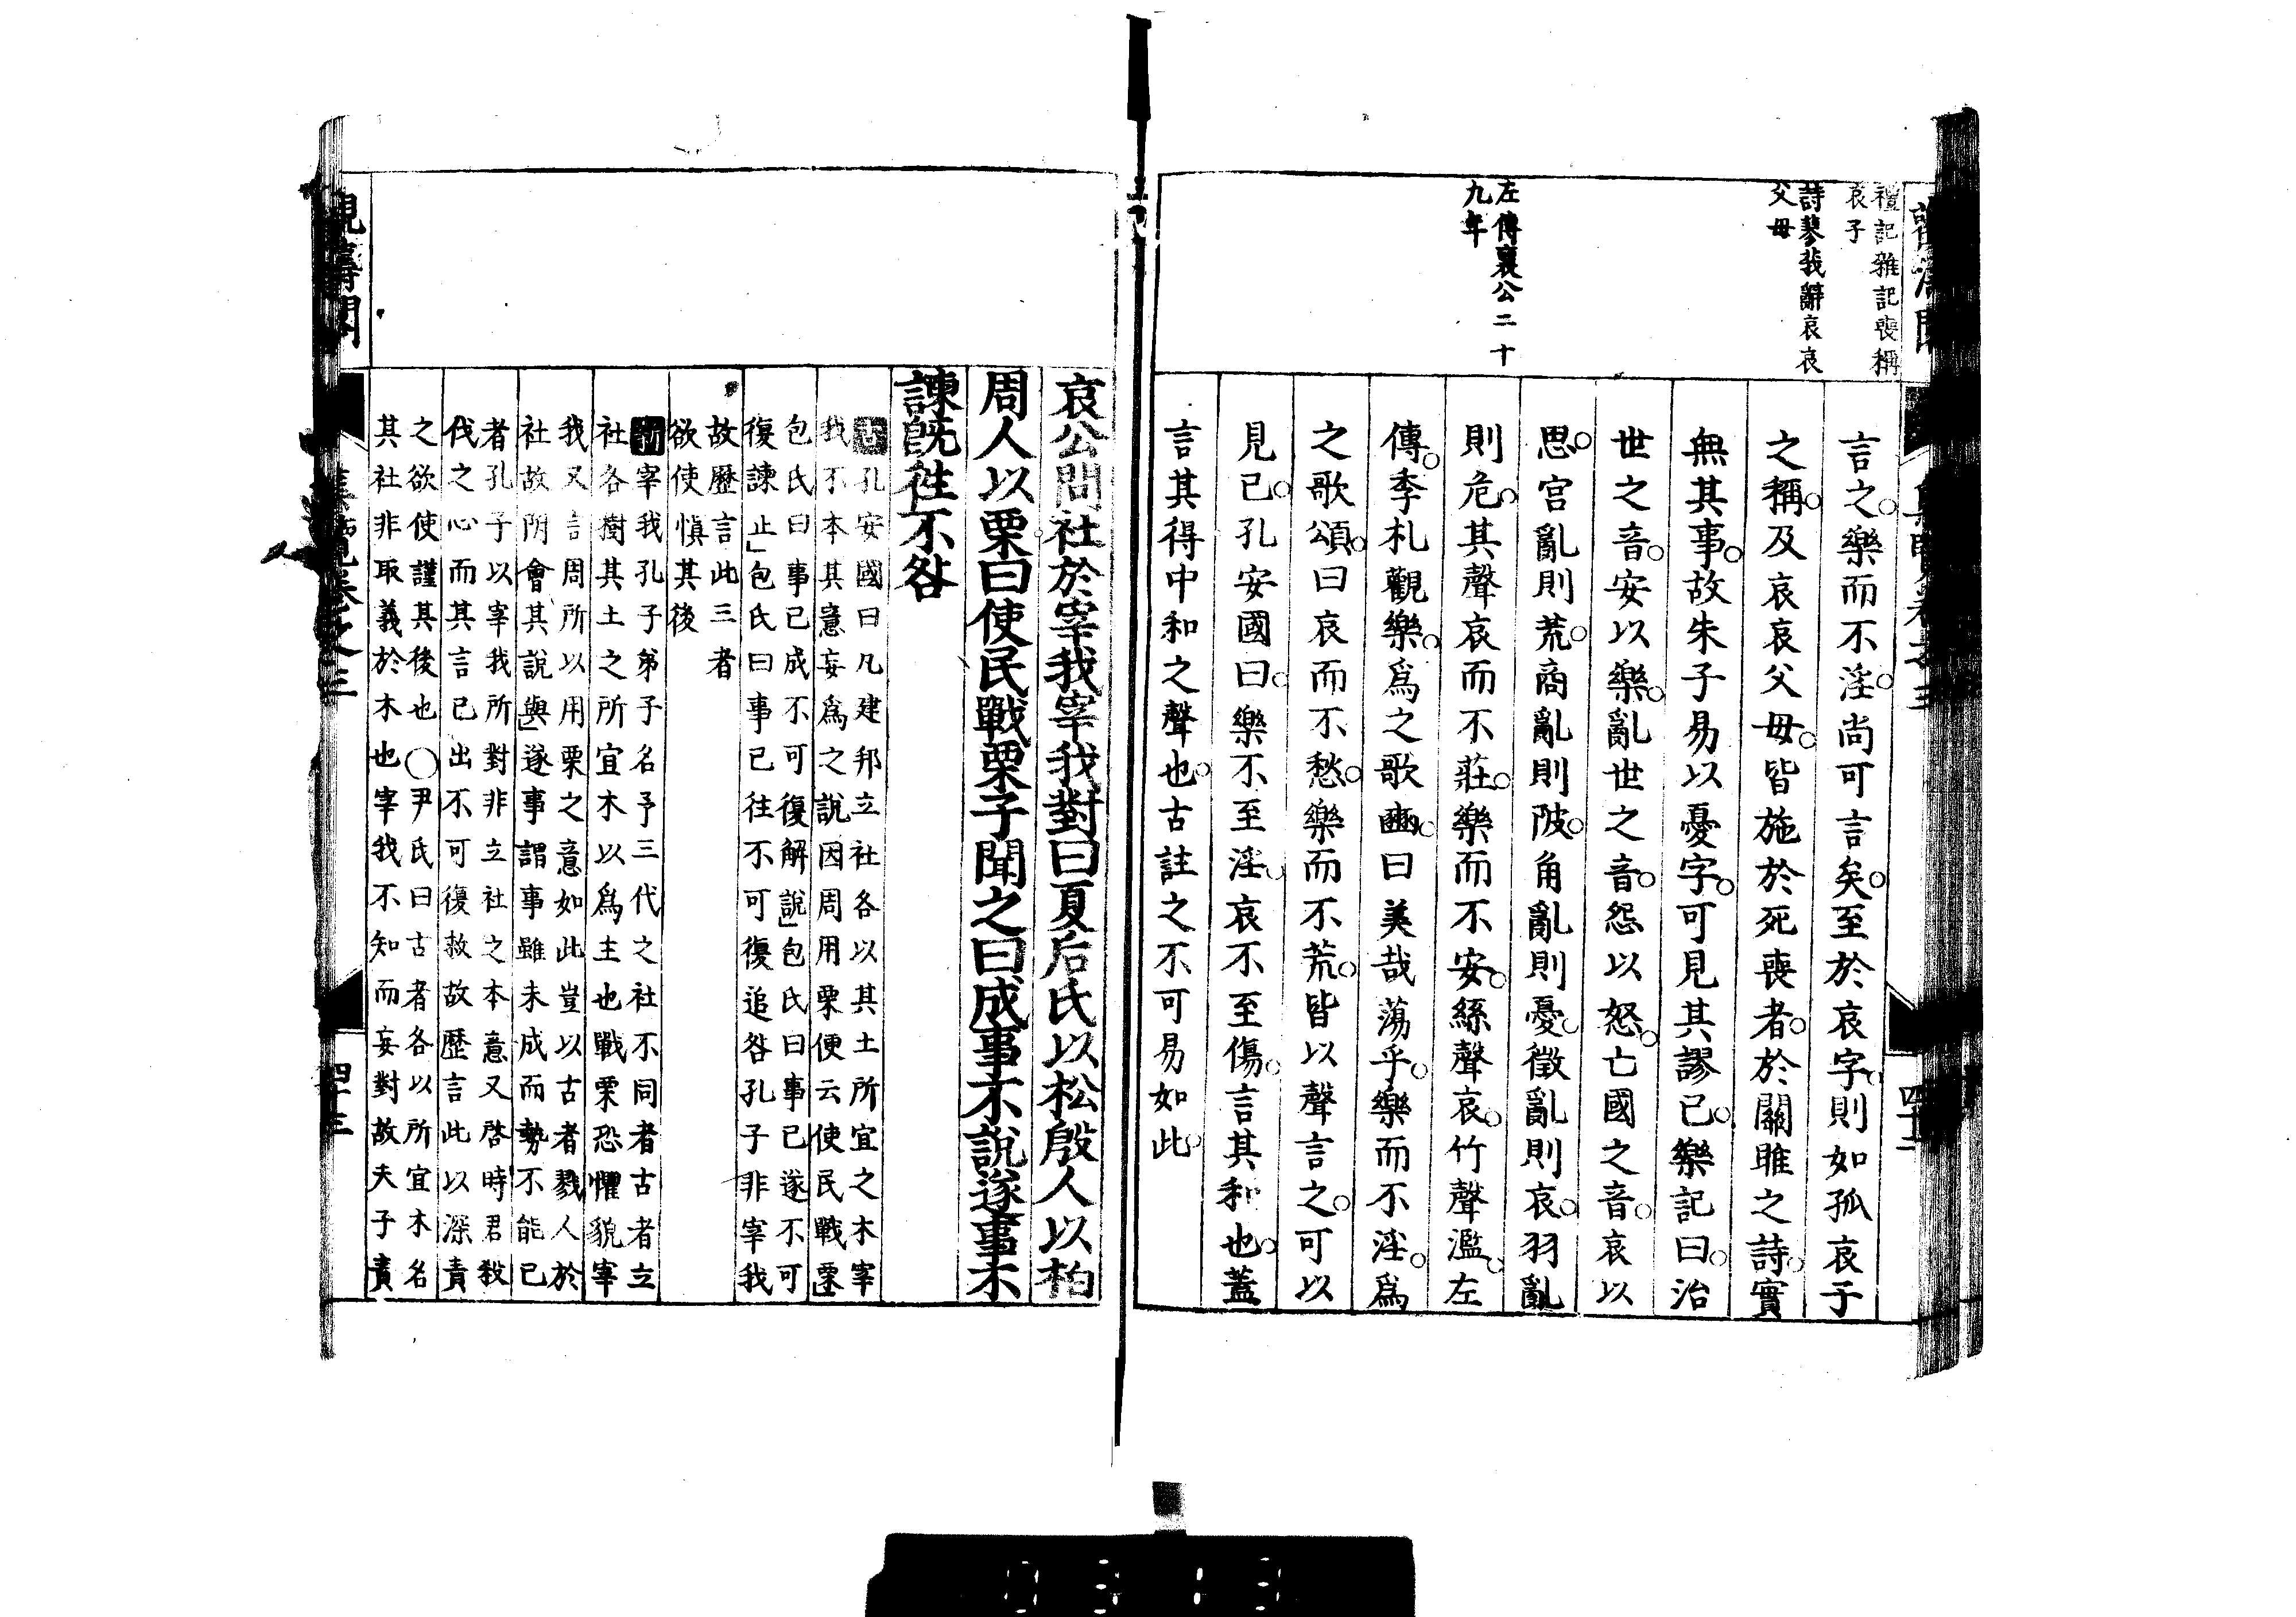 禮記雜記喪稱
哀子
詩蓼莪辭哀哀
父母
左傳襄公二十
九年
言之樂而不淫尚可言矣至於哀字則如孤哀子
之稱及哀哀父母皆施於死喪者於關雎之詩實
無其事故朱子易以憂字可見其謬已樂記曰治
世之音安以樂亂世之音怨以怒亡國之音哀以
思宮亂則荒商亂則陂角亂則憂徵亂則哀羽亂
則危其聲哀而不莊樂而不安絲聲哀竹聲濫左
傳季札觀樂爲之歌豳曰美哉蕩乎樂而不淫爲
之歌頌曰哀而不愁樂而不荒皆以聲言之可以
見已孔安國曰樂不至淫哀不至傷言其和也蓋
言其得中和之聲也古註之不可易如此
哀公問社於宰我宰我對曰夏后氏以松殷人以柏
周人以栗曰使民戰栗子聞之曰成事不說遂事不
諫既徃不咎
古孔安國曰凡建邦立社各以其土所宜之木宰
我不本其意妄爲之說因周用栗便云使民戰栗
包氏曰事已成不可復解說包氏曰事已遂不可
復諫止包氏曰事已往不可復追咎孔子非宰我
故歷言此三者
欲使愼其後
新宰我孔子弟子名予三代之社不同者古者立
社各樹其土之所宜木以爲主也戰栗恐懼貌宰
我又言周所以用栗之意如此豈以古者戮人於
社故附會其說與遂事謂事雖未成而勢不能已
者孔子以宰我所對非立社之本意又啓時君殺
伐之心而其言已出不可復救故歷言此以深責
之欲使謹其後也○尹氏曰古者各以所宜木名
其社非取義於木也宰我不知而妄對故夫子責
四十三